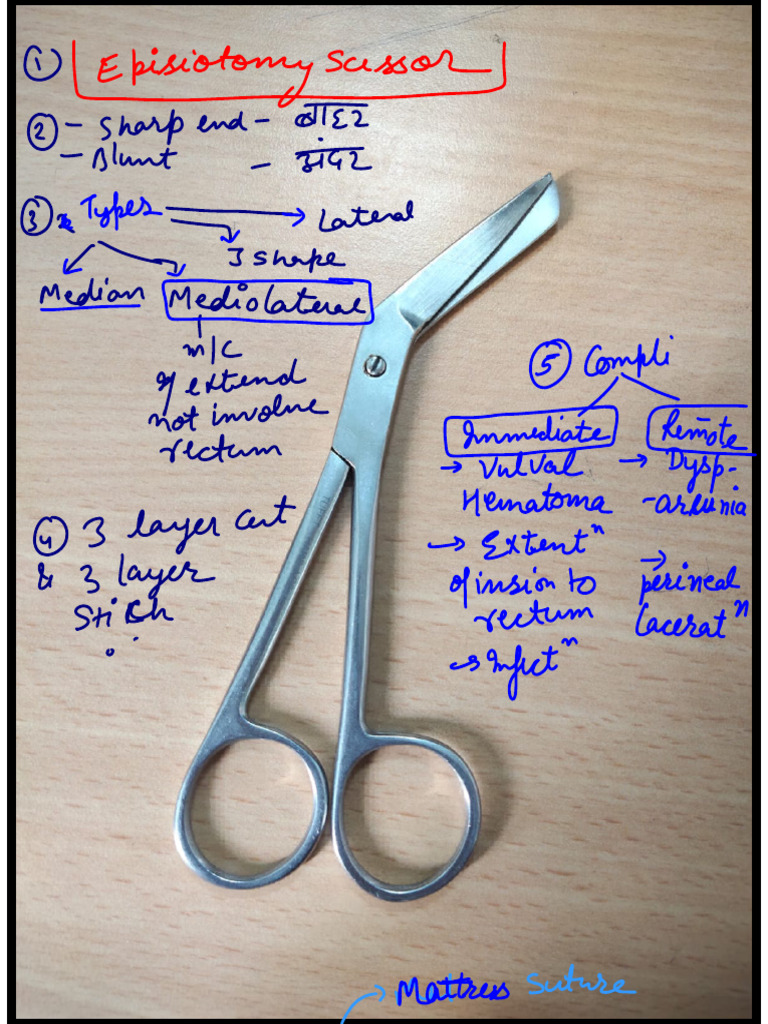 ① Episiotomy Scissor
② - Sharp end - बाहर
- Blunt - अंदर
③ Types → Lateral
J shape
Median Mediolateral
m/c
if extend
not involve
rectum
④ 3 layer cut
& 3 layer
Stitch
⑤ Compli
Immediate
→ Vulval
Hematoma
→ Extentⁿ
of insion to
rectum
→ Infectⁿ
Remote
→ Dysp-
-areunia
→ perineal
laceratⁿ
→ Mattress suture